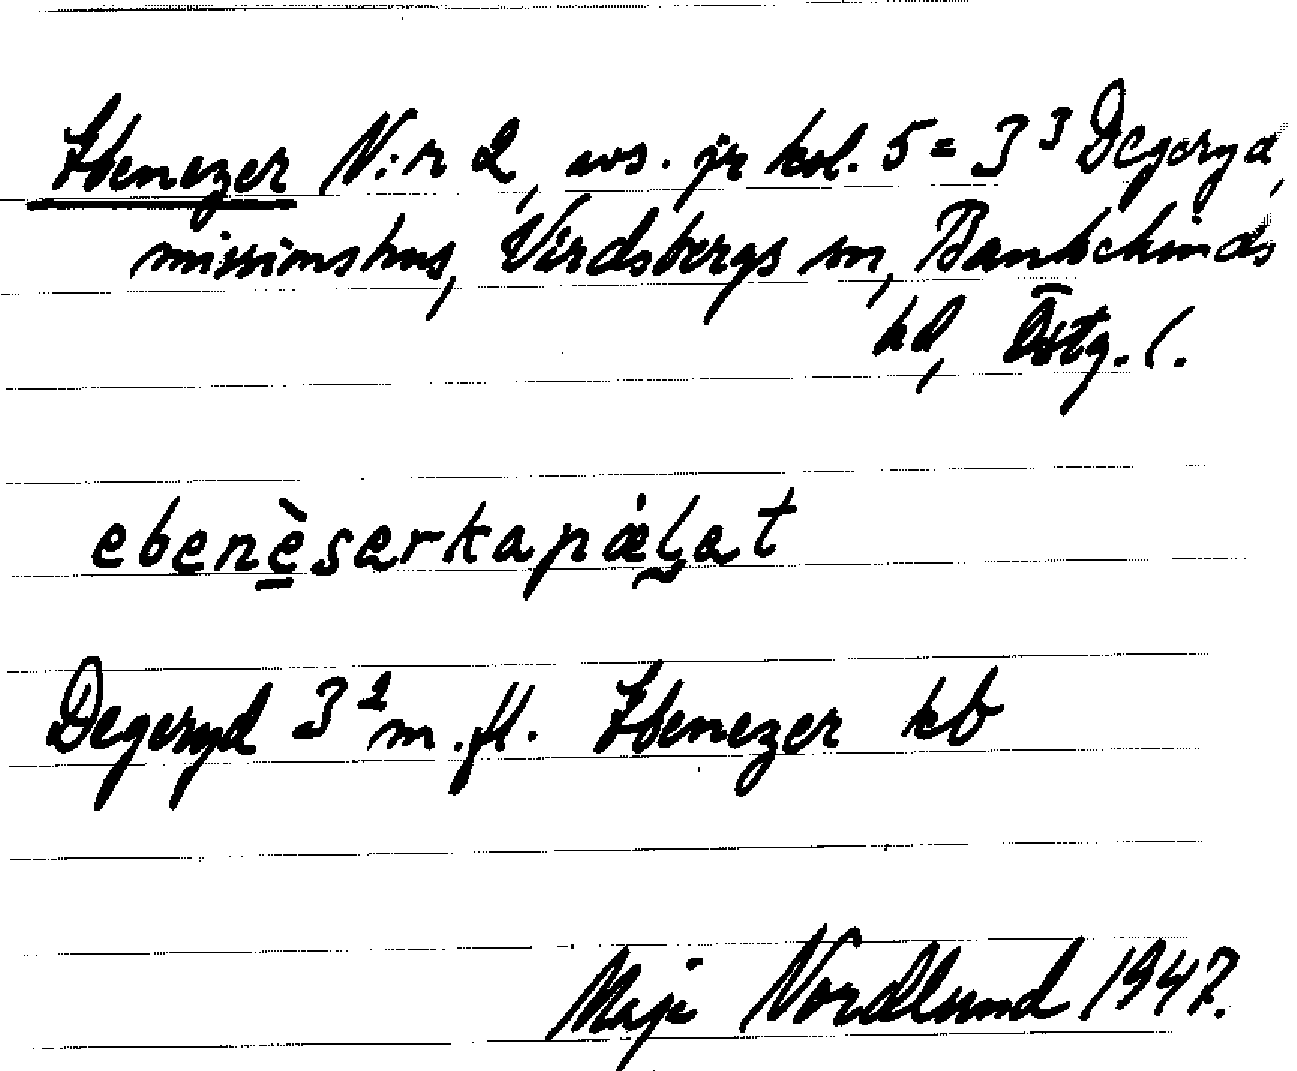 Ebenezer N:r 2, avs. jr kol. 5 = 3³ Degeryd,
missionshus, Vårdsbergs sn, Bankekinds
hd, Östg. l.
ebenèsərkapæ̀lət
Degeryd 3² m.fl. Ebenezer kb
Maje Nordlund 1947.